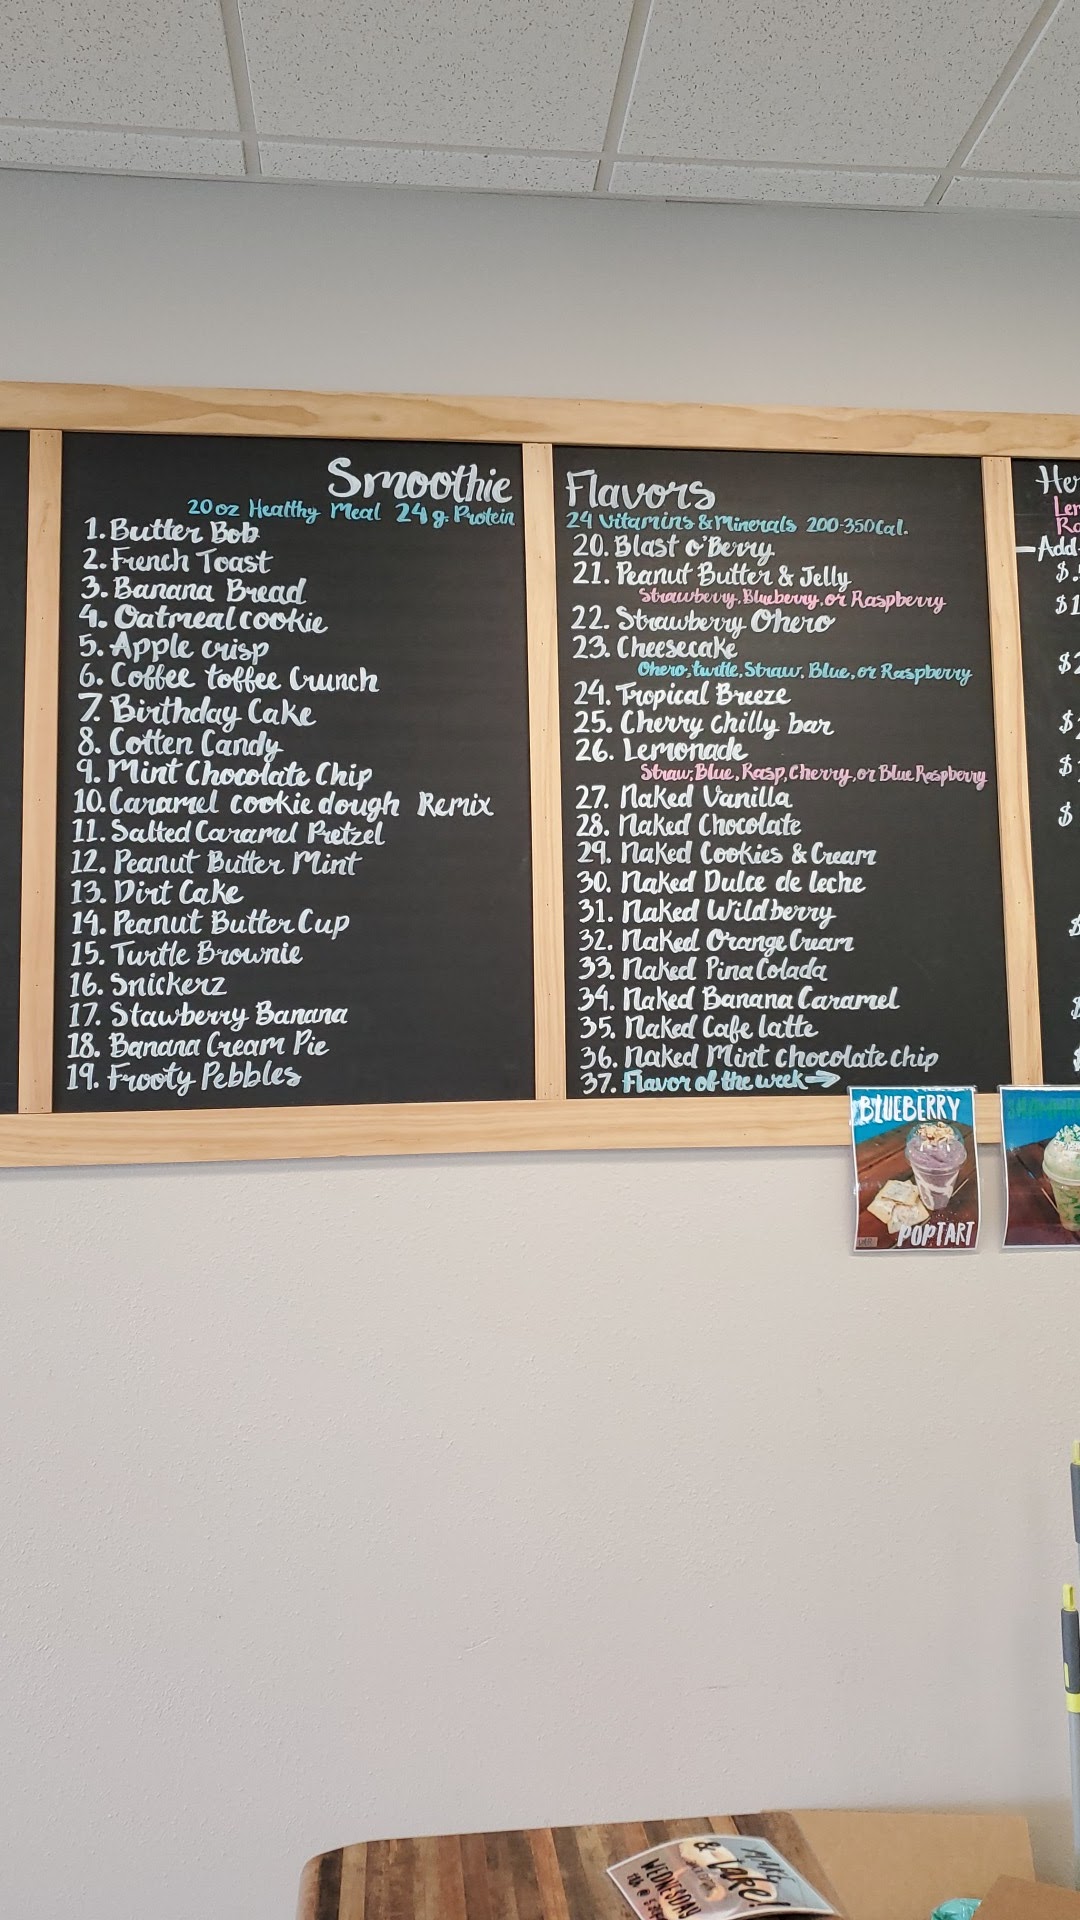 Smoothie
20 oz Healthy Meal 24 g. Protein
1. Butter Bob
2. French Toast
3. Banana Bread
4. Oatmeal cookie
5. Apple crisp
6. Coffee toffee Crunch
7. Birthday Cake
8. Cotten Candy
9. Mint Chocolate Chip
10. Caramel cookie dough Remix
11. Salted Caramel Pretzel
12. Peanut Butter Mint
13. Dirt Cake
14. Peanut Butter Cup
15. Turtle Brownie
16. Snickerz
17. Stawberry Banana
18. Banana Cream Pie
19. Frooty Pebbles
Flavors
24 Vitamins & Minerals 200-350 Cal.
20. Blast o'Berry
21. Peanut Butter & Jelly
Strawberry, Blueberry, or Raspberry
22. Strawberry Ohero
23. Cheesecake
Ohero, turtle, Straw, Blue, or Raspberry
24. Tropical Breeze
25. Cherry chilly bar
26. Lemonade
Straw, Blue, Rasp, Cherry, or Blue Raspberry
27. Naked Vanilla
28. Naked Chocolate
29. Naked Cookies & Cream
30. Naked Dulce de leche
31. Naked Wildberry
32. Naked Orange Cream
33. Naked Pina Colada
34. Naked Banana Caramel
35. Naked Cafe latte
36. Naked Mint chocolate chip
37. Flavor of the week→
Add
BLUEBERRY
POPTART
MAKE
& take!
WEDNESDAY